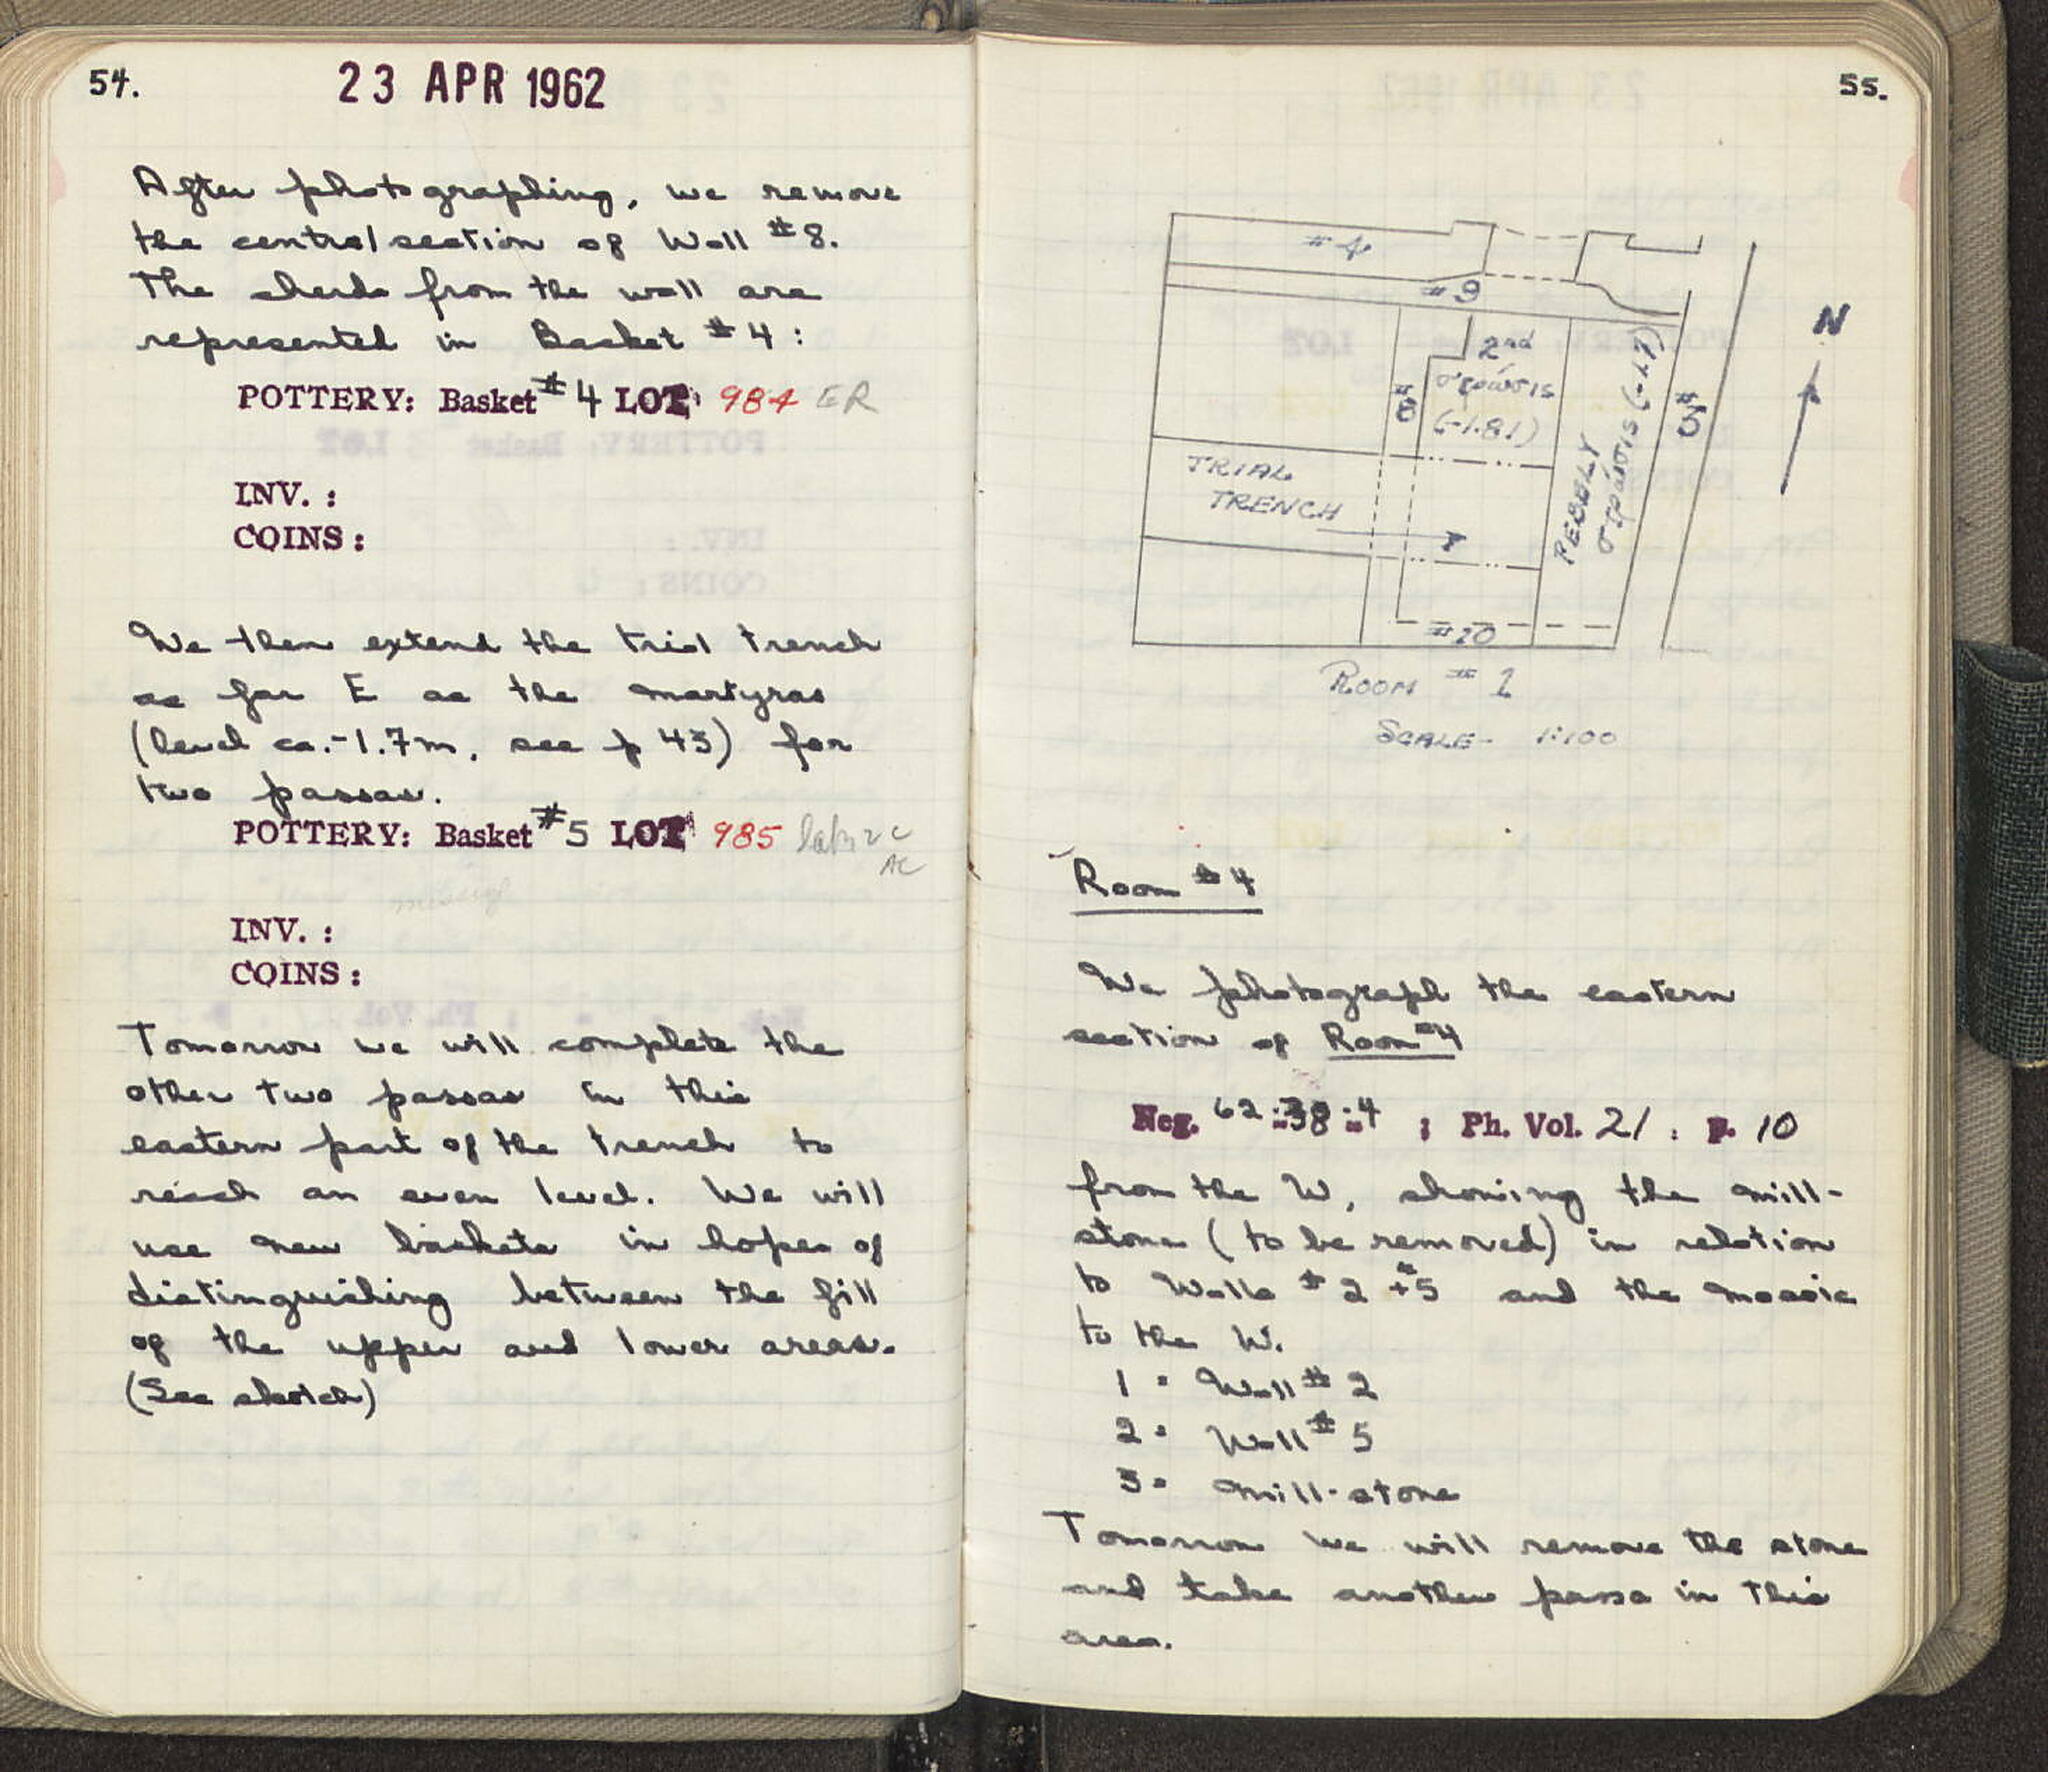 54.
23 APR 1962
After photographing, we remove
the central section of Wall #8.
The sherds from the wall are
represented in Basket #4:
POTTERY: Basket #4 LOT 984 ER
INV. :
COINS:
We then extend the trial trench
as far E as the martyras
(level ca. -1.7m, see p 43) for
two passas.
POTTERY: Basket #5 LOT 985 late 2 C
AC
missing
INV. :
COINS:
Tomorrow we will complete the
other two passas in this
eastern part of the trench to
reach an even level. We will
use new baskets in hopes of
distinguishing between the fill
of the upper and lower areas.
(See sketch)
55.
#4
#9
N
2nd
στρώσις
(-1.81)
#8
PEBBLY
στρώσις (-1.7)
#5
TRIAL
TRENCH
#10
ROOM #1
SCALE - 1:100
Room #4
We photograph the eastern
section of Room #4
Neg. 62-38-4 ; Ph. Vol. 21 , p. 10
from the W, showing the mill-
stone (to be removed) in relation
to Walls #2 + #5 and the mosaic
to the W.
1 = Wall #2
2 = Wall #5
3 = Mill-stone
Tomorrow we will remove the stone
and take another passa in this
area.